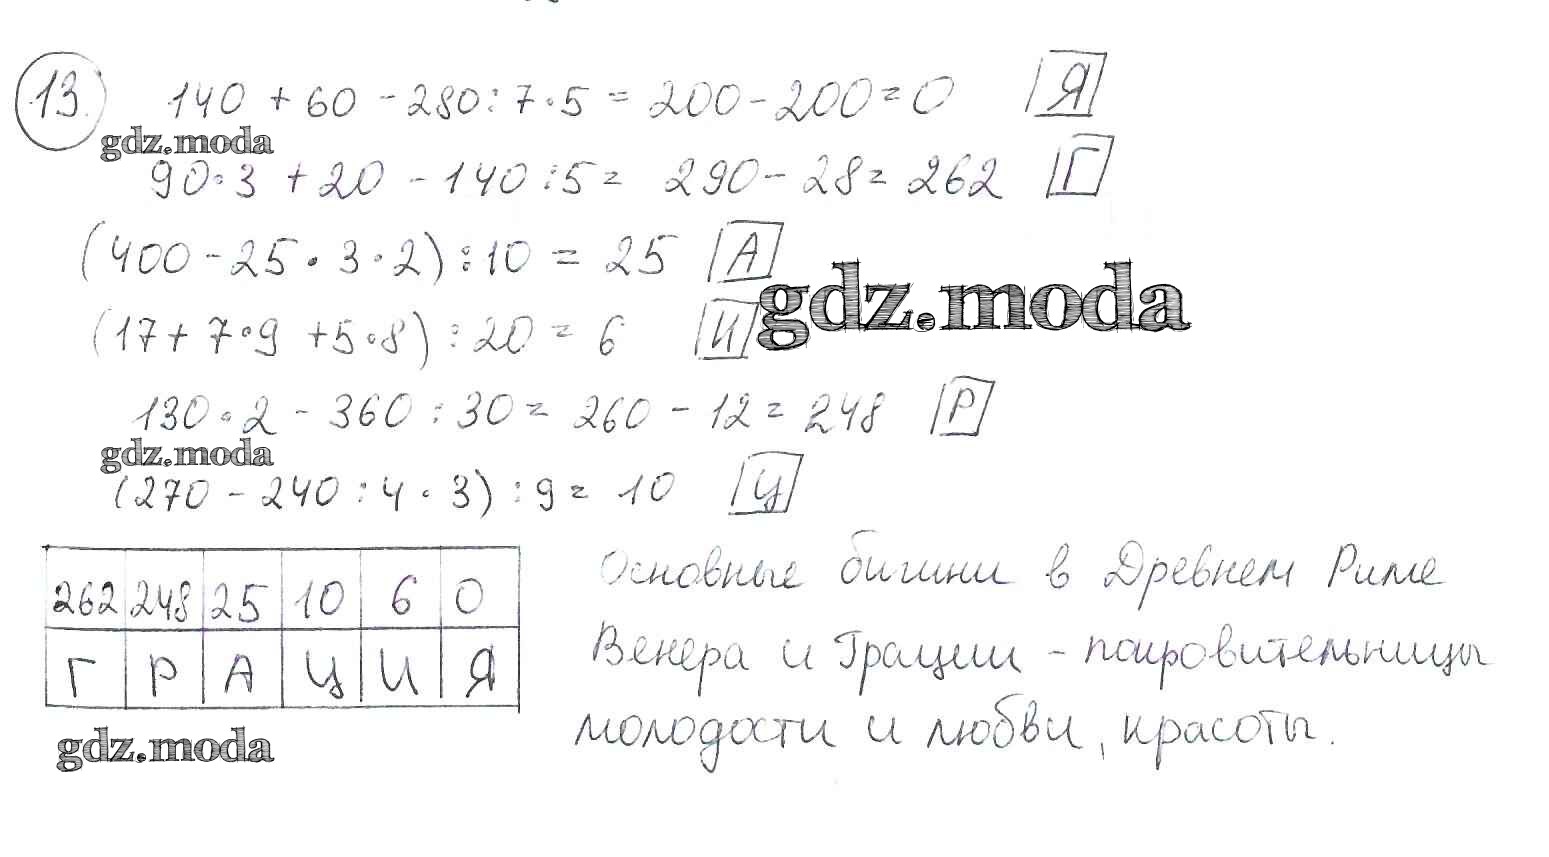 13. 140 + 60 - 280 : 7 · 5 = 200 - 200 = 0 Я
gdz.moda
90 · 3 + 20 - 140 : 5 = 290 - 28 = 262 Г
(400 - 25 · 3 · 2) : 10 = 25 А
gdz.moda
(17 + 7 · 9 + 5 · 8) : 20 = 6 И
130 · 2 - 360 : 30 = 260 - 12 = 248 Р
gdz.moda
(270 - 240 : 4 · 3) : 9 = 10 Ц
262 248 25 10 6 0
Г Р А Ц И Я
Основные бигини в Древнем Риме
Венера и Грации - покровительницы
молодости и любви, красоты.
gdz.moda